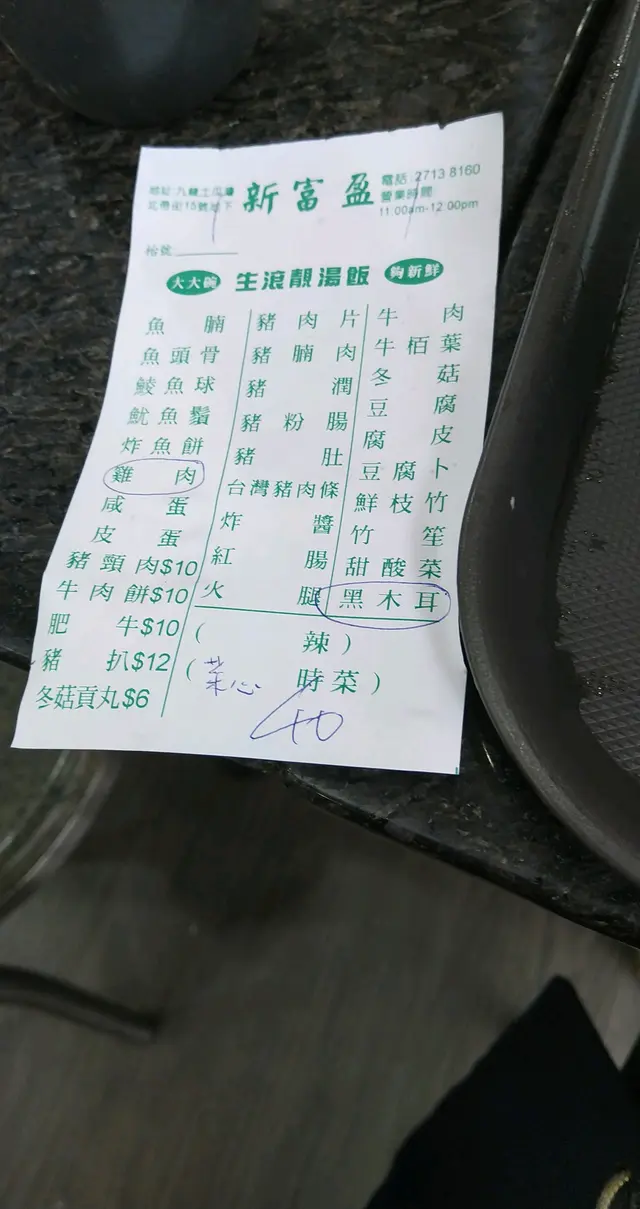 地址:九龍土瓜灣
北帝街15號地下
新富盈
電話:2713 8160
營業時間:
11:00am-12:00pm
枱號
大大碗
生滾靚湯飯
夠新鮮
魚腩
魚頭骨
鯪魚球
魷魚鬚
炸魚餅
雞肉
咸蛋
皮蛋
豬頸肉$10
牛肉餅$10
肥牛$10
豬扒$12
冬菇貢丸$6
豬肉片
豬腩肉
豬潤
豬粉腸
豬肚
台灣豬肉條
炸醬
紅腸
火腿
牛肉
牛栢葉
冬菇
豆腐
腐皮
豆腐卜
鮮枝竹
竹笙
甜酸菜
黑木耳
(辣)
(菜心 時菜)
40